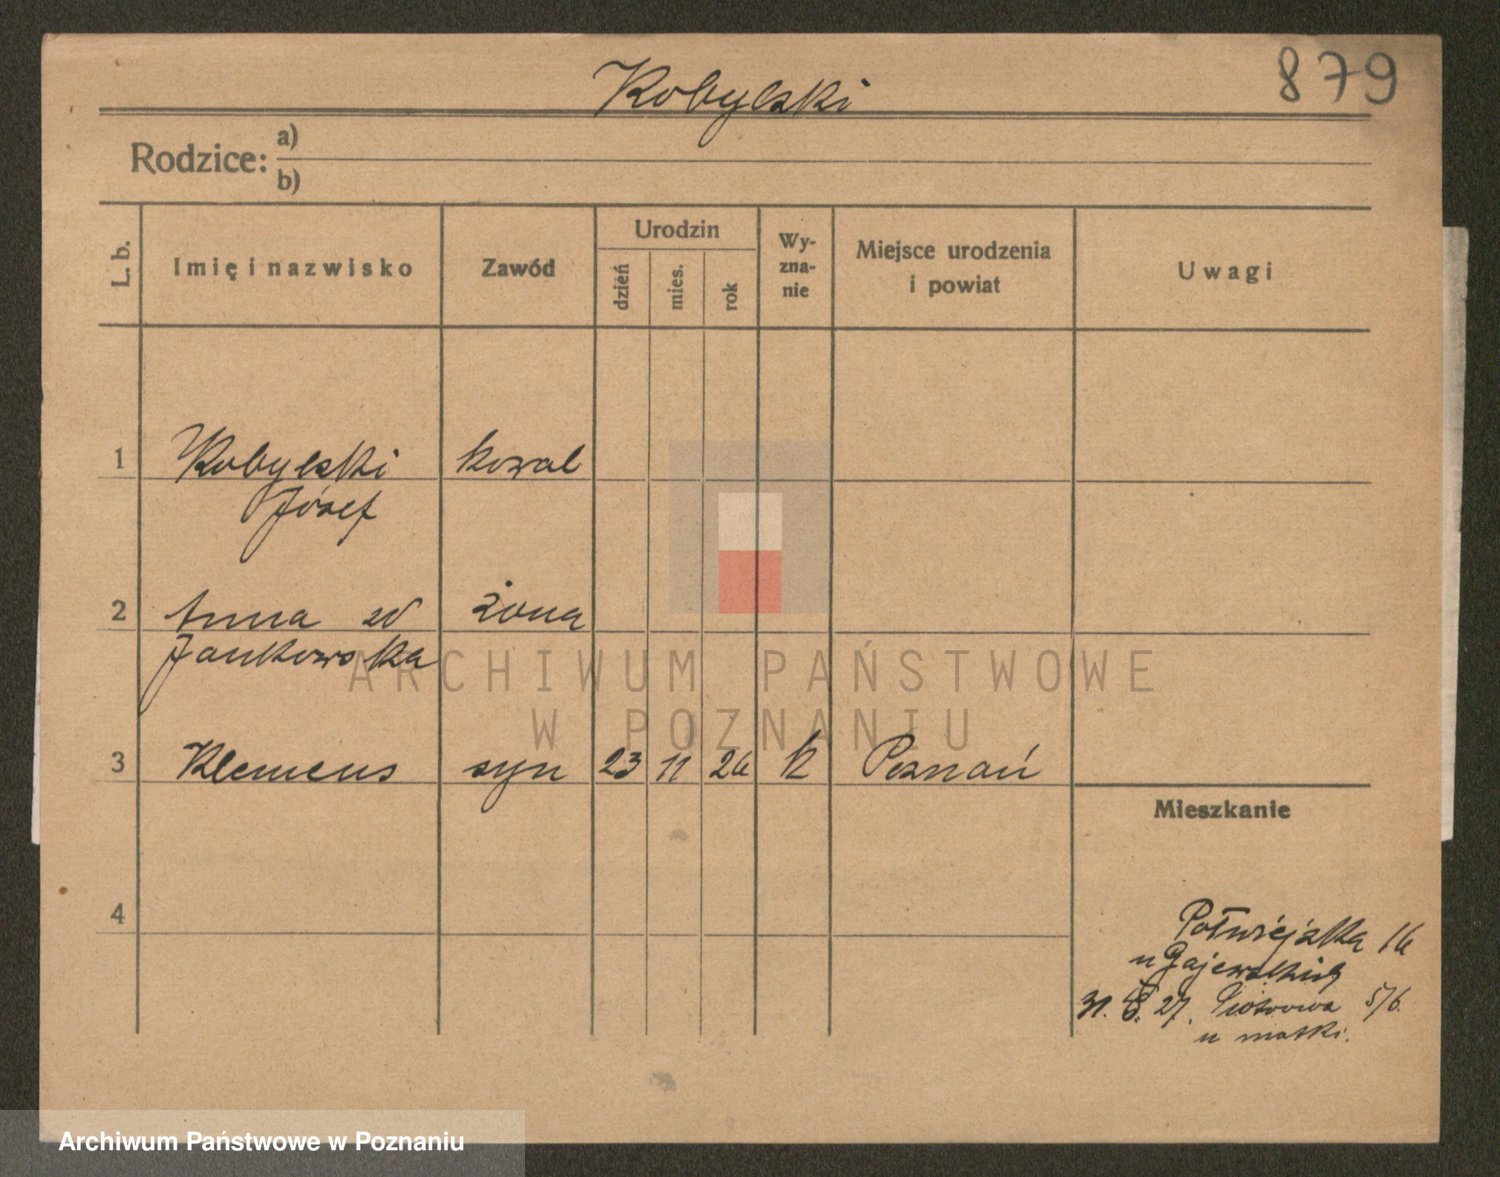 879
Kobylski
Rodzice: a)
b)
L. b.
Imię i nazwisko
Zawód
Urodzin
dzień
mies.
rok
Wy-
zna-
nie
Miejsce urodzenia
i powiat
Uwagi
1 Kobylski kowal
Józef
2 Anna żona
Jankowska
3 Klemens syn 23 11 26 k Poznań
Mieszkanie
4
Półwiejska 16
u Gajewskich
31. 8. 27. Piotrowa 5/6.
u matki.
ARCHIWUM PAŃSTWOWE
W POZNANIU
Archiwum Państwowe w Poznaniu